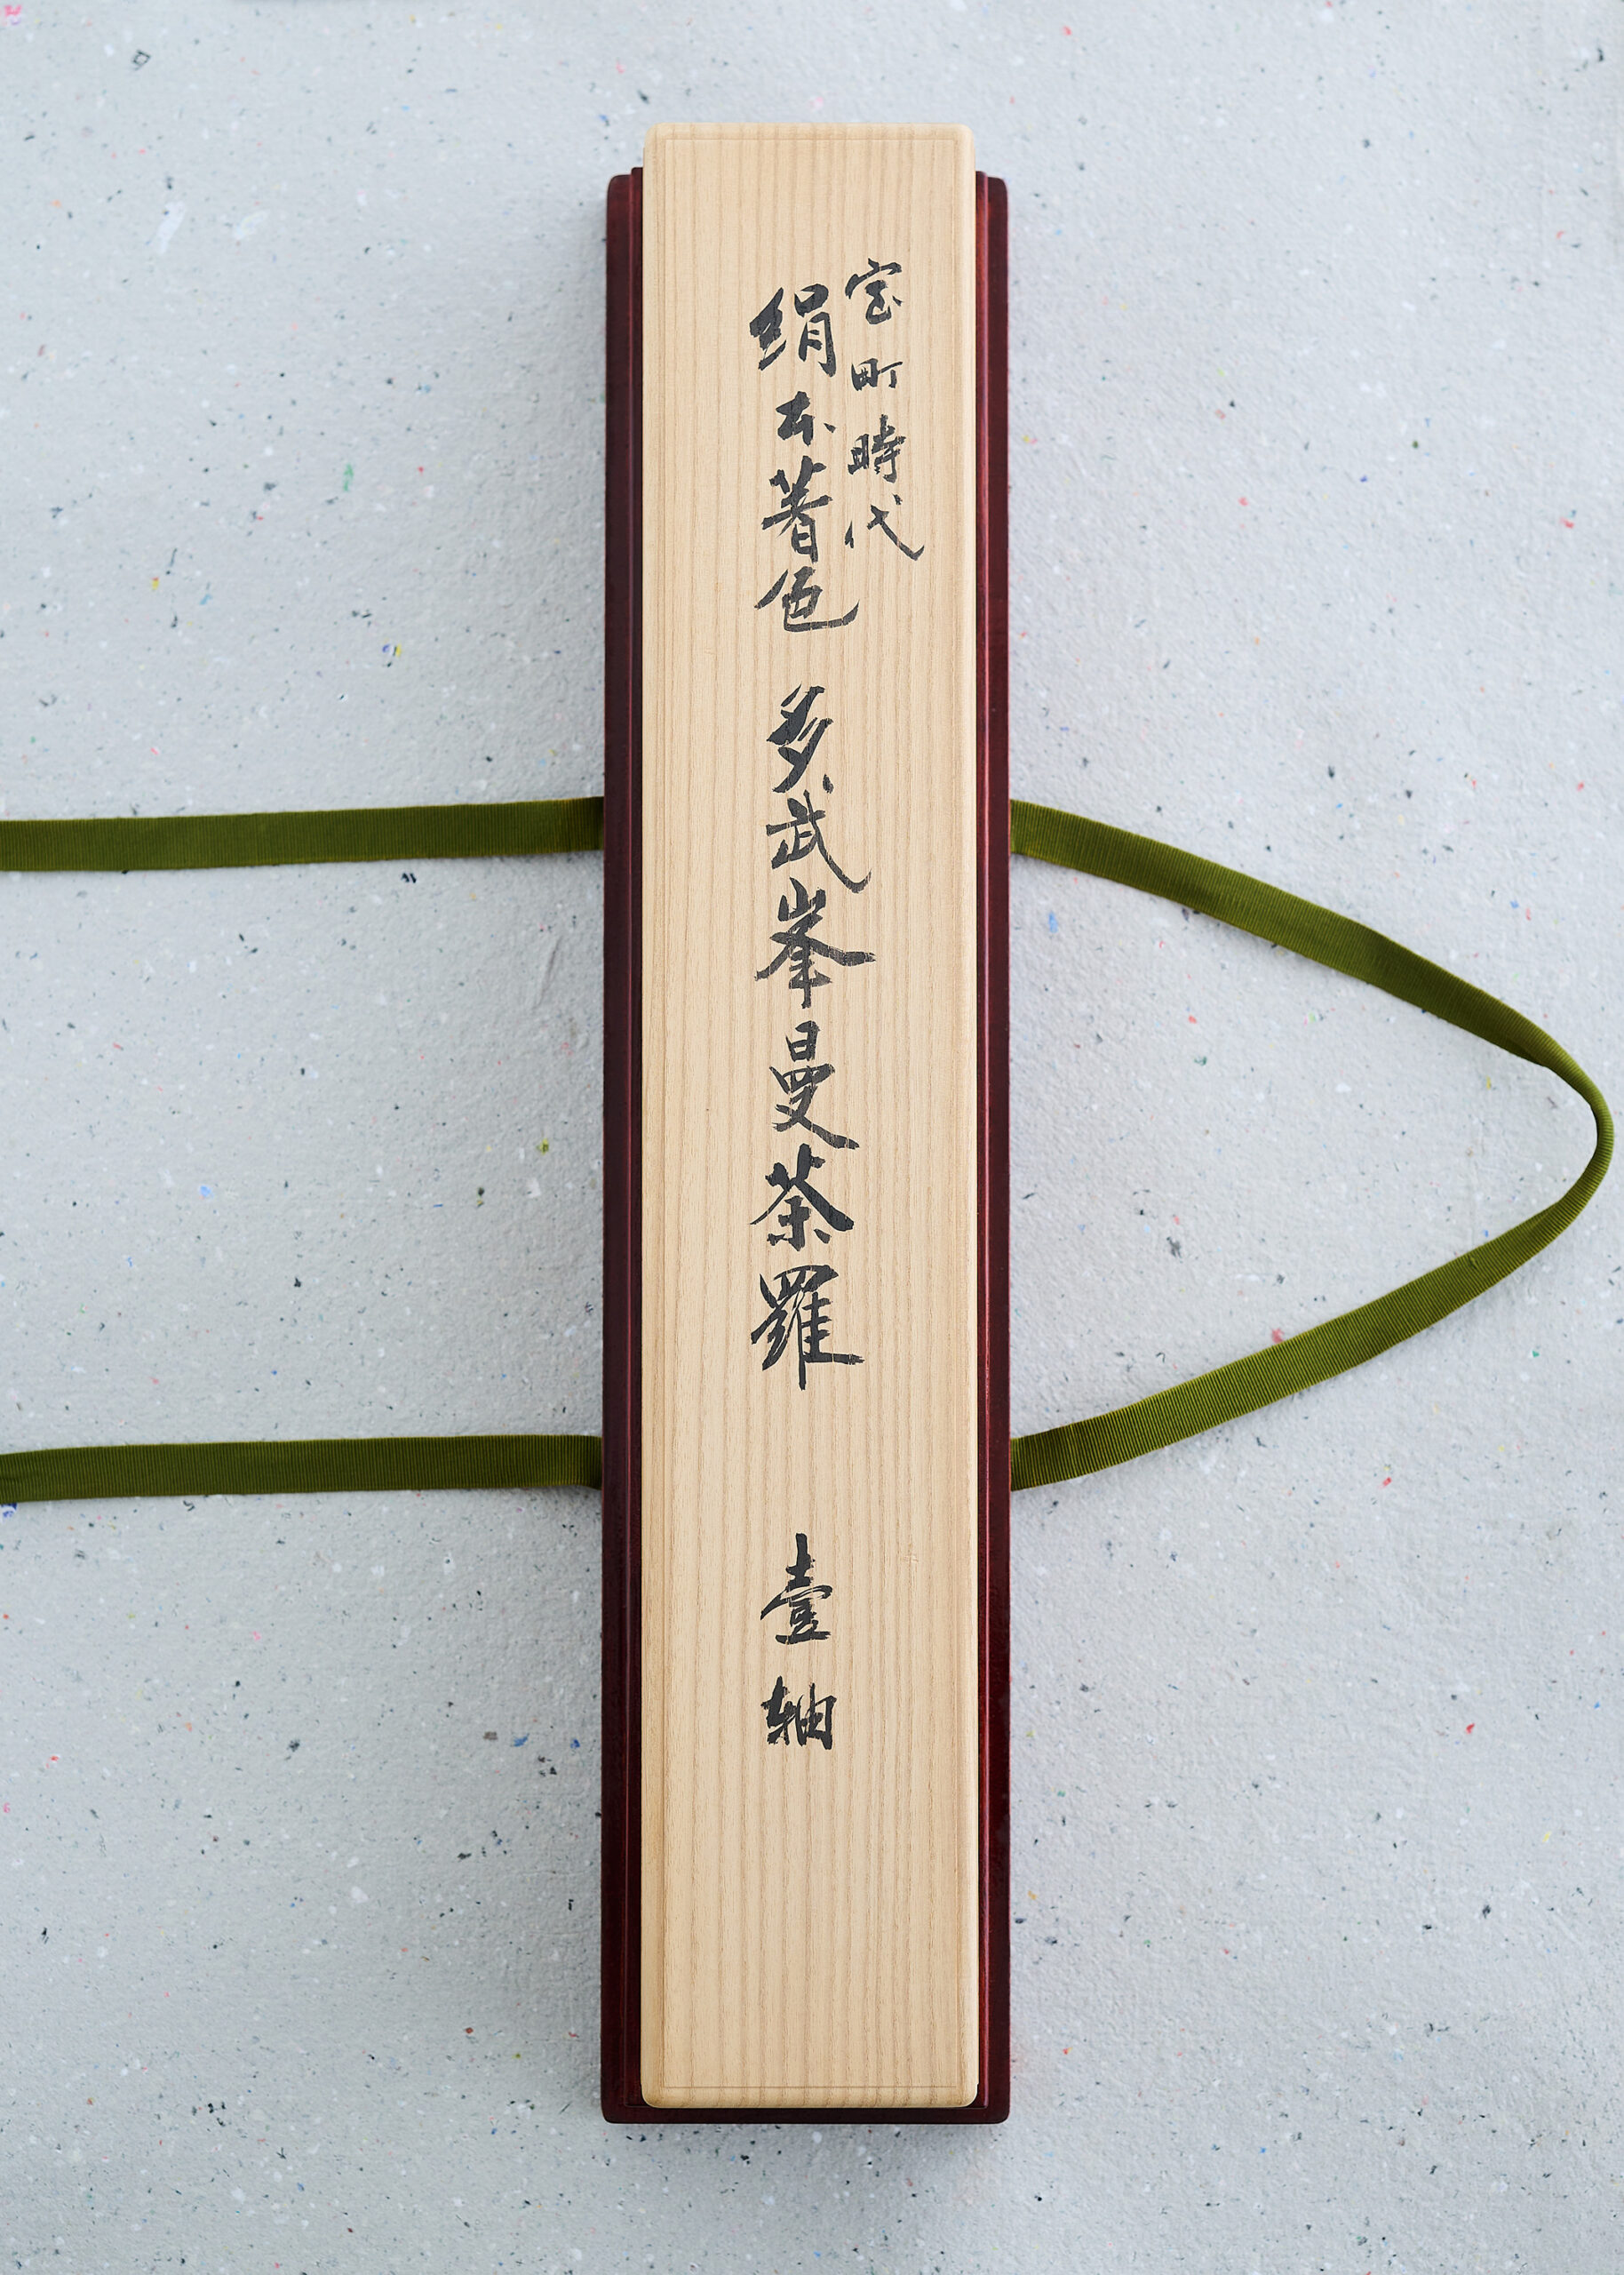 室町時代
絹本著色 多武峯曼荼羅 壹軸